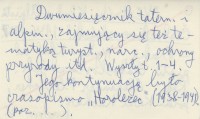 Dwumiesięcznik tatern. i
alpin., zajmujący się też te-
matyką turyst., narc., ochrony
przyrody itd. Wyszły t. 1-4.
Jego kontynuacją było
czasopismo „Horolezec" (1938-1941)
(poz. ....).